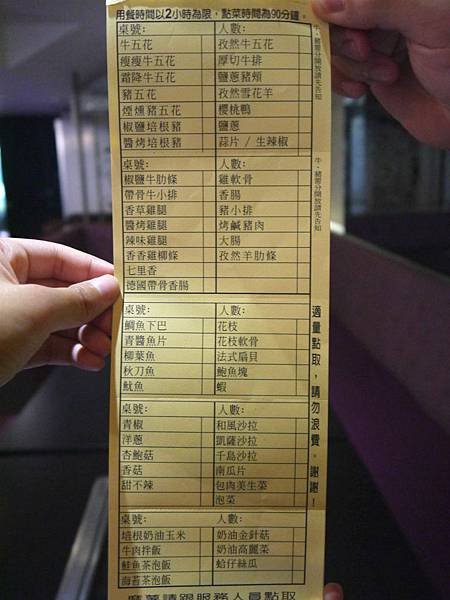 用餐時間以2小時為限，點菜時間為90分鐘。
桌號： 人數：
牛五花 孜然牛五花
瘦瘦牛五花 厚切牛排
霜降牛五花 鹽蔥豬頰
豬五花 孜然雪花羊
煙燻豬五花 櫻桃鴨
椒鹽培根豬 鹽蔥
醬烤培根豬 蒜片 / 生辣椒
牛、豬需分開放請先告知
桌號： 人數：
椒鹽牛肋條 雞軟骨
帶骨牛小排 香腸
香草雞腿 豬小排
醬烤雞腿 烤鹹豬肉
辣味雞腿 大腸
香香雞柳條 孜然羊肋條
七里香
德國帶骨香腸
牛、豬需分開放請先告知
桌號： 人數：
鯛魚下巴 花枝
青醬魚片 花枝軟骨
柳葉魚 法式扇貝
秋刀魚 鮑魚塊
魷魚 蝦
桌號： 人數：
青椒 和風沙拉
洋蔥 凱薩沙拉
杏鮑菇 千島沙拉
香菇 南瓜片
甜不辣 包肉美生菜
泡菜
適量點取，請勿浪費。謝謝！
桌號： 人數：
培根奶油玉米 奶油金針菇
牛肉拌飯 奶油高麗菜
鮭魚茶泡飯 蛤仔絲瓜
海苔茶泡飯
請跟服務人員點取